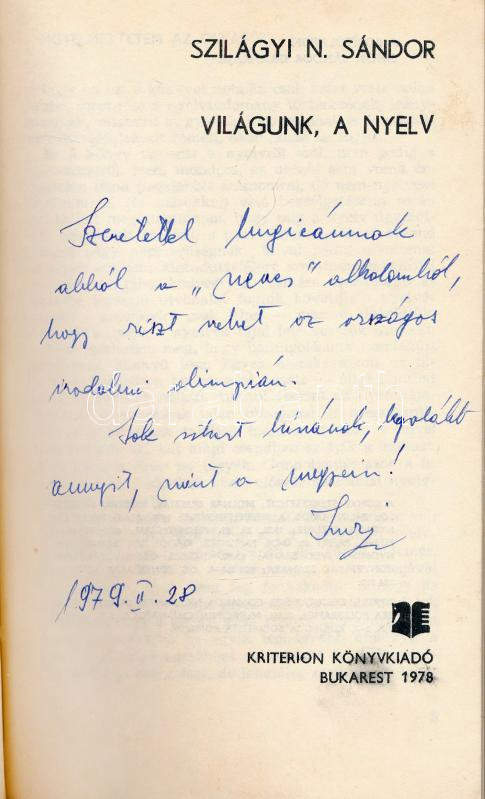 SZILÁGYI N. SÁNDOR
VILÁGUNK, A NYELV
Szeretettel
abból a „neves" alkalomból,
hogy részt vehet az országos
irodalmi olimpián.
Sok sikert kívánok, legalább
annyit, mint a megyein!
1979. II. 28
KRITERION KÖNYVKIADÓ
BUKAREST 1978
darabanth